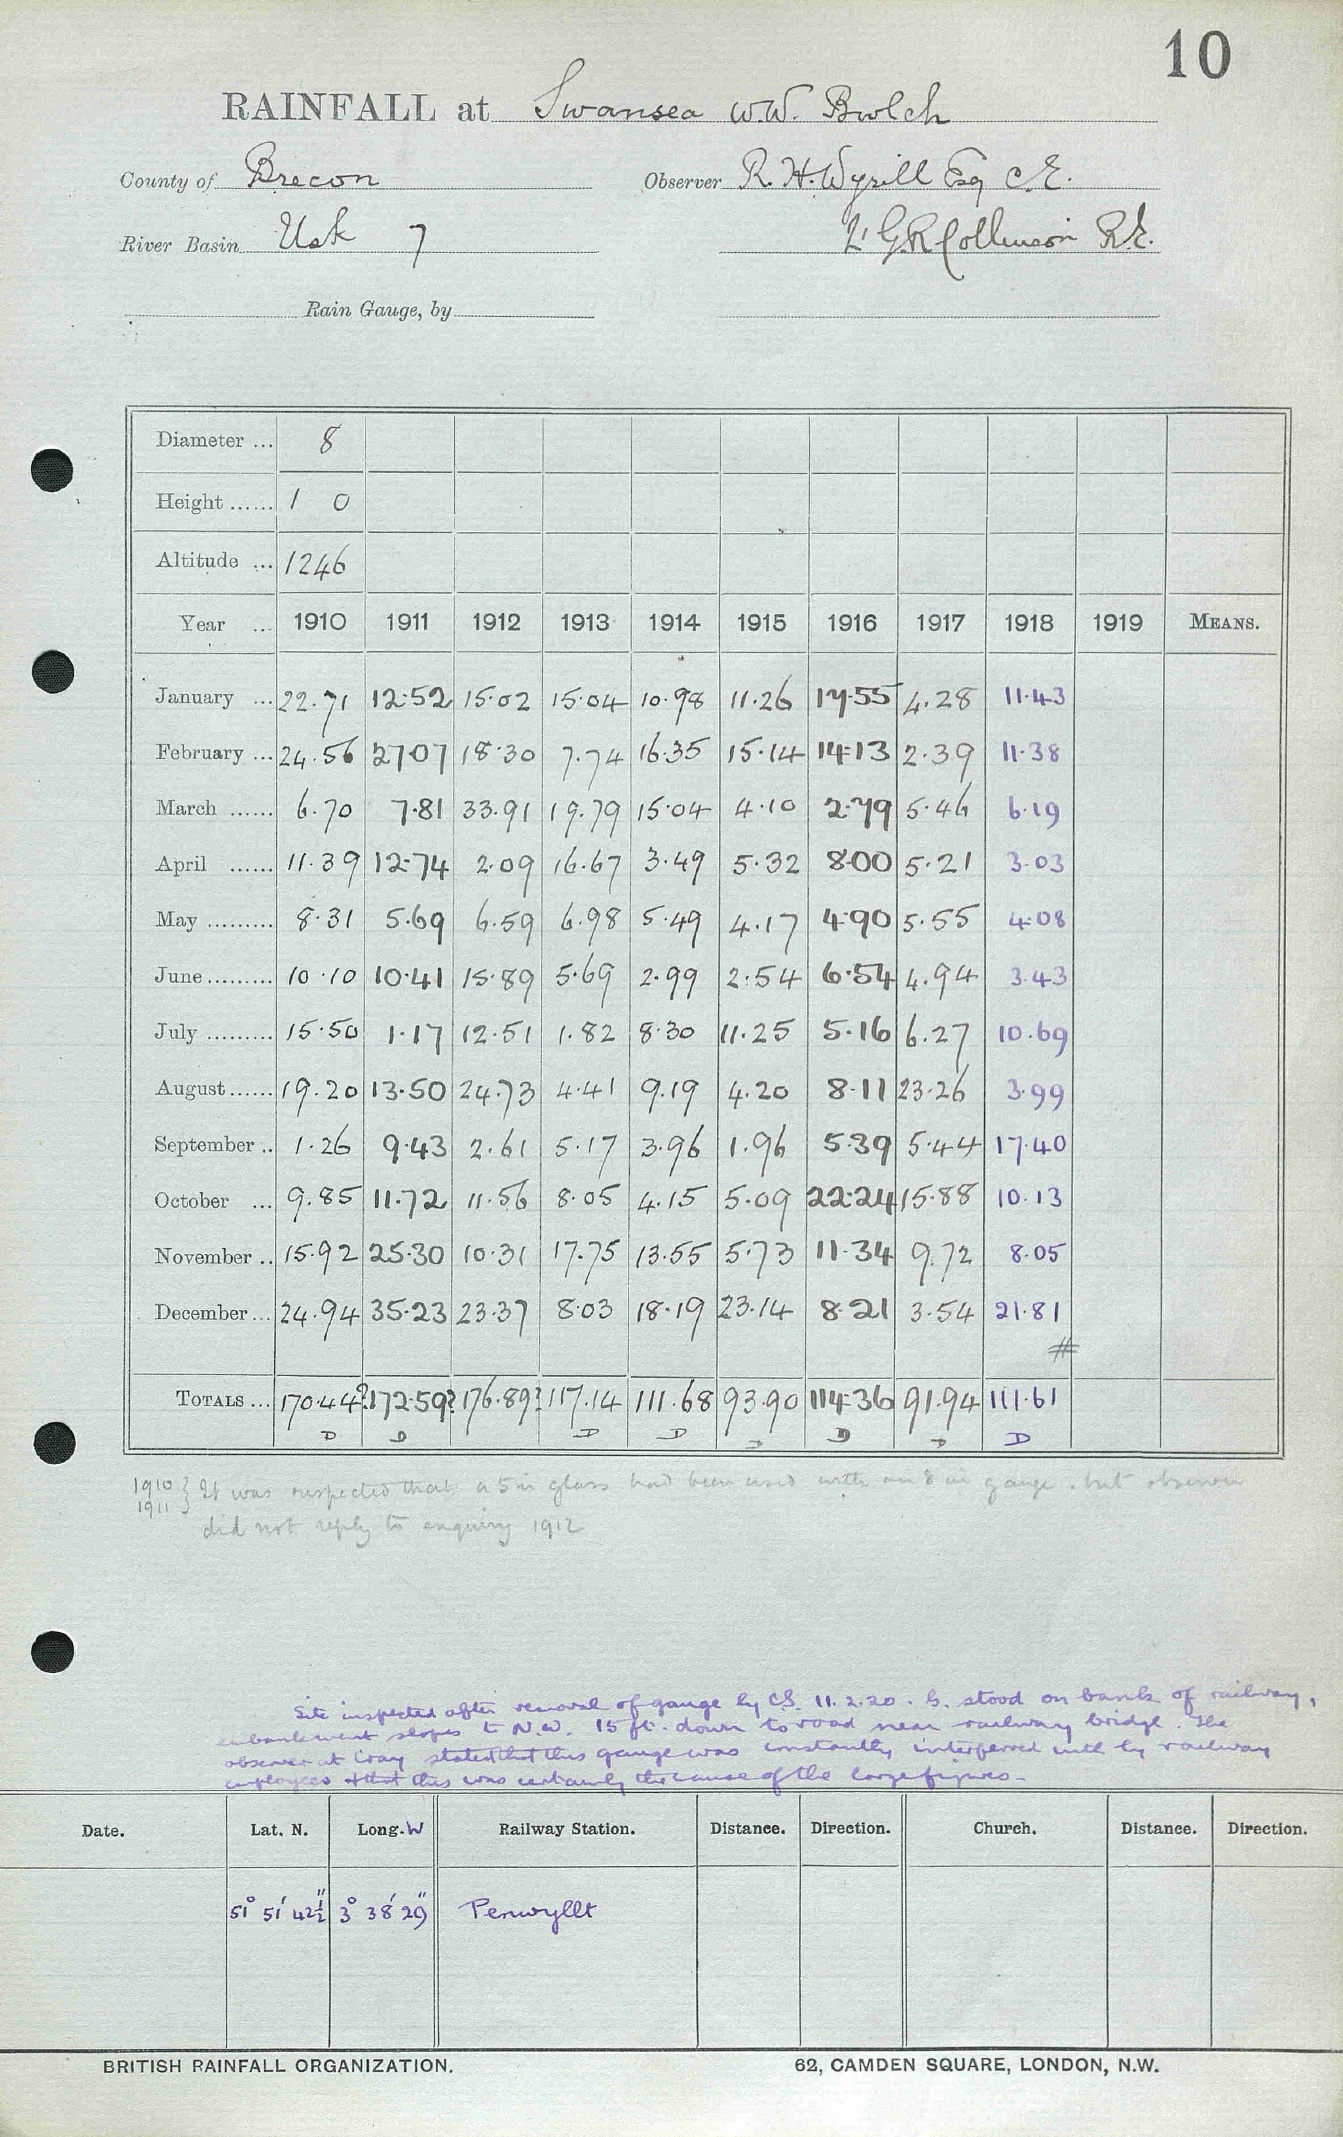 10
RAINFALL at Swansea W.W. Bwlch
County of Brecon Observer R. H. Wyrill Esq C.E.
River Basin Usk 7 Lt G R Collinson R.E.
Rain Gauge, by
Diameter ... 8
Height ...... 1 0
Altitude ... 1246
Year ... 1910 1911 1912 1913 1914 1915 1916 1917 1918 1919 MEANS.
January ... 22.71 12.52 15.02 15.04 10.98 11.26 17.55 4.28 11.43
February ... 24.56 27.07 18.30 7.74 16.35 15.14 14.13 2.39 11.38
March ...... 6.70 7.81 33.91 19.79 15.04 4.10 2.79 5.46 6.19
April ...... 11.39 12.74 2.09 16.67 3.49 5.32 8.00 5.21 3.03
May ......... 8.31 5.69 6.59 6.98 5.49 4.17 4.90 5.55 4.08
June ......... 10.10 10.41 15.89 5.69 2.99 2.54 6.54 4.94 3.43
July ......... 15.50 1.17 12.51 1.82 8.30 11.25 5.16 6.27 10.69
August ...... 19.20 13.50 24.73 4.41 9.19 4.20 8.11 23.26 3.99
September .. 1.26 9.43 2.61 5.17 3.96 1.96 5.39 5.44 17.40
October ... 9.85 11.72 11.56 8.05 4.15 5.09 22.24 15.88 10.13
November .. 15.92 25.30 10.31 17.75 13.55 5.73 11.34 9.72 8.05
December ... 24.94 35.23 23.37 8.03 18.19 23.14 8.21 3.54 21.81
#
TOTALS ... 170.44? 172.59? 176.89? 117.14 111.68 93.90 114.36 91.94 111.61
D D D D D D D D
1910 } It was suspected that a 5 in glass had been used with an 8 in gauge. but observer
1911 } did not reply to enquiry 1912
Site inspected after removal of gauge by C.S. 11.2.20. G. stood on bank of railway,
embankment slopes to N.W. 15 ft. down to road near railway bridge. The
observer at Cray stated that this gauge was constantly interfered with by railway
employees & that this was certainly the cause of the large figures.
Date. Lat. N. Long. W Railway Station. Distance. Direction. Church. Distance. Direction.
51° 51' 42½" 3° 38' 29" Penwyllt
BRITISH RAINFALL ORGANIZATION. 62, CAMDEN SQUARE, LONDON, N.W.